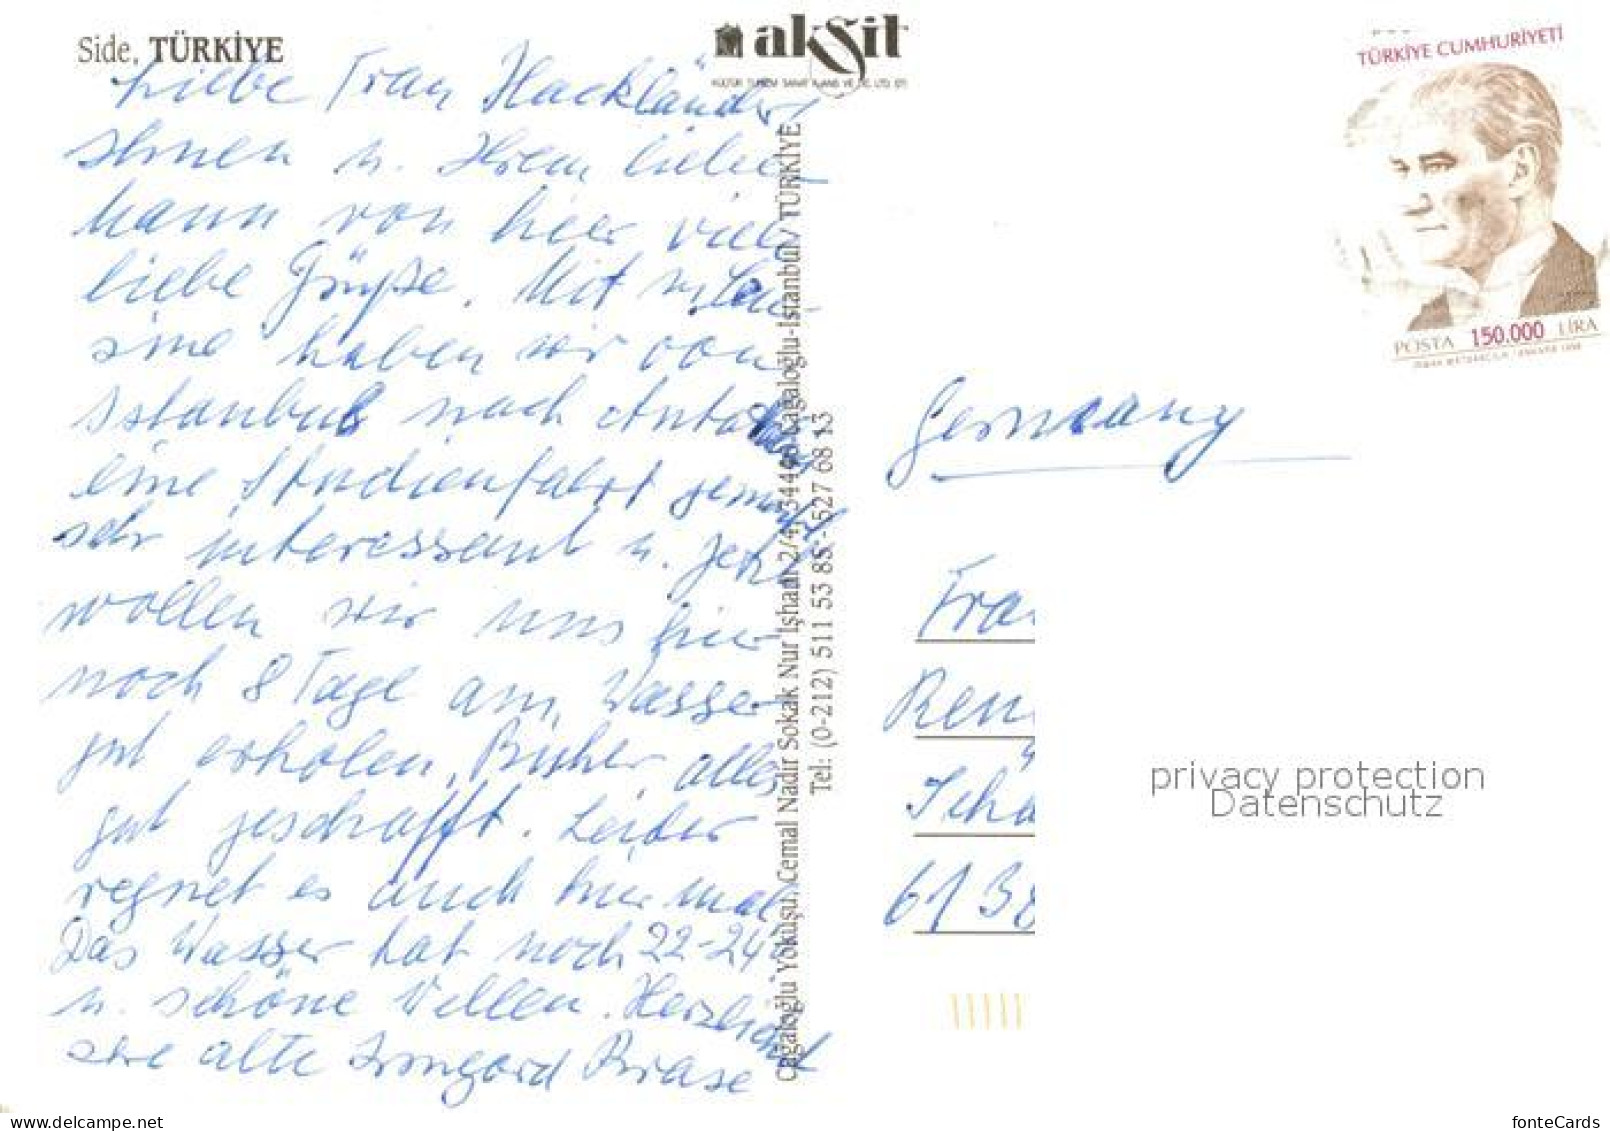 Side, TÜRKİYE
akşit
KÜLTÜR TURİZM SANAT AJANS VE TİC. LTD. ŞTİ.
TÜRKİYE CUMHURİYETİ
POSTA 150.000 LİRA
Liebe Frau Hackländer,
Ihnen u. Ihrem lieben
Mann von hier viele
liebe Grüße. Mit
haben wir von
Istanbul nach Antalya
eine Studienfahrt gemacht
sehr interessant u. jetzt
wollen wir uns hier
noch 8 Tage am Wasser
gut erholen. Bisher alles
gut geschafft. Leider
regnet es auch hier mal
Das Wasser hat noch 22-24°
u. schöne Wellen. Herzlichst
Ihre alte Irmgard Brase
Cağaloğlu Yokuşu, Cemal Nadir Sokak Nur İşhanı 2/4, 34440 Cağaloğlu-İstanbul / TÜRKİYE
Tel: (0-212) 511 53 85 - 527 68 13
Germany
Frau
Ren
Schä
61 38
privacy protection
Datenschutz
fonteCards